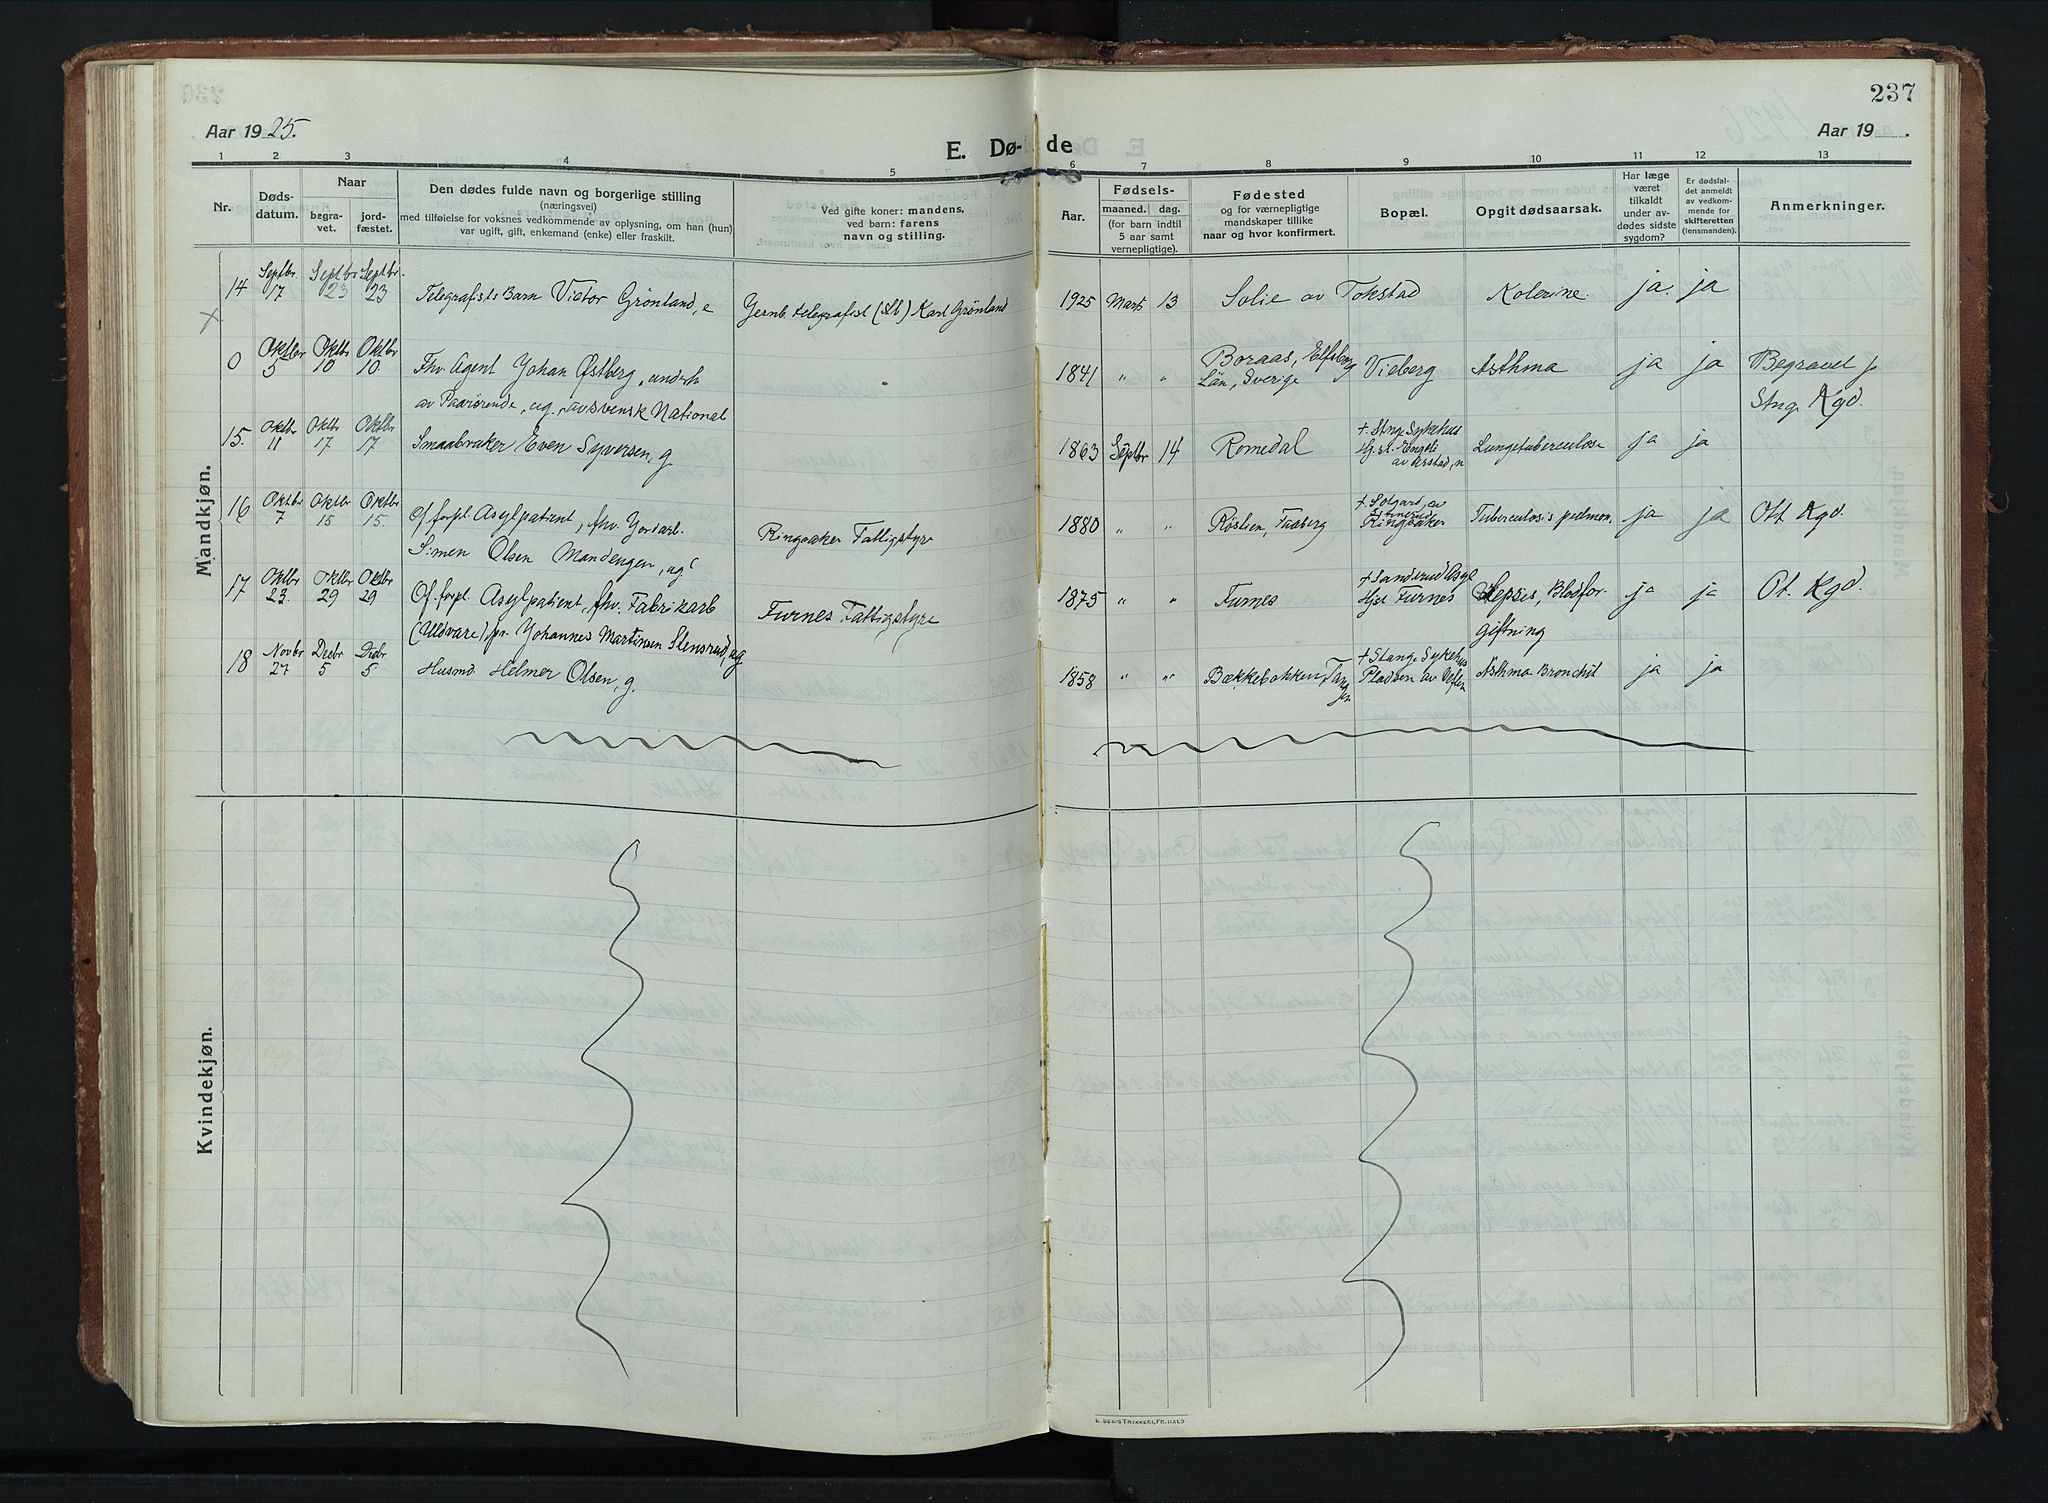 237
Aar 1925.
E. Dø-
de
Aar 19 .
1 2 3 4 5 6 7 8 9 10 11 12 13
Nr.
Døds-
datum.
Naar
begra-
vet.
jord-
fæstet.
Den dødes fulde navn og borgerlige stilling
(næringsvei)
med tilføielse for voksnes vedkommende av oplysning, om han (hun)
var ugift, gift, enkemand (enke) eller fraskilt.
Ved gifte koner: mandens,
ved barn: farens
navn og stilling.
Aar.
Fødsels-
maaned. dag.
(for barn indtil
5 aar samt
vernepligtige).
Fødested
og for værnepligtige
mandskaper tillike
naar og hvor konfirmert.
Bopæl.
Opgit dødsaarsak.
Har læge
været
tilkaldt
under av-
dødes sidste
sygdom?
Er dødsfal-
det anmeldt
av vedkom-
mende for
skifteretten
(lensmanden).
Anmerkninger.
Mandkjøn.
14 Septbr 17 Septbr 23 Septbr 23 Telegrafists Barn Victor Grønland, e Jernb. telegrafist Karl Grønland 1925 Marts 13 Solie av Tokstad Kolerine ja ja
X
0 Oktbr 5 Oktbr 10 Oktbr 10. Fhv. Agent Johan Østberg, underh. 1841 " " Boraas, Elfsborg Vieberg Asthma ja ja Begravet p.
av Paarørende, ug., av svensk National Län, Sverige Stng. Kgd.
15. Oktbr 11 Oktbr 17 Oktbr 17 Smaabruker Even Syversen, g. 1863 Septbr 14 Romedal + Stnge Sykehus Lungetuberculose ja ja
16 Oktbr 7 Oktbr 15 Oktbr 15. Of. forpl. Asylpatient, fhv. Jordarb. Ringsaker Fattigstyre 1880 " Faaberg Ringsaker Tuberculosis pulmon. ja ja Ott. Kgd.
Simen Olsen Mandengen, ug.
17 Oktbr 23 Oktbr 29 Oktbr 29 Of. forpl. Asylpatient, fhv. Fabrikarb Furnes Fattigstyre 1875 " " Furnes + Sanderud Asyl Hjst Furnes Sepsis, Blodfor- ja ja Ot. Kgd.
(Uldvare)spr. Johannes Martinsen Stensrud, ug giftning
18 Novbr 27 Decbr 5 Decbr 5 Husmd Helmer Olsen, g. 1858 " " Bækkebakken, Tangen + Stange Sykehus Pladsen av Asthma Bronchit ja ja
Kvindekjøn.